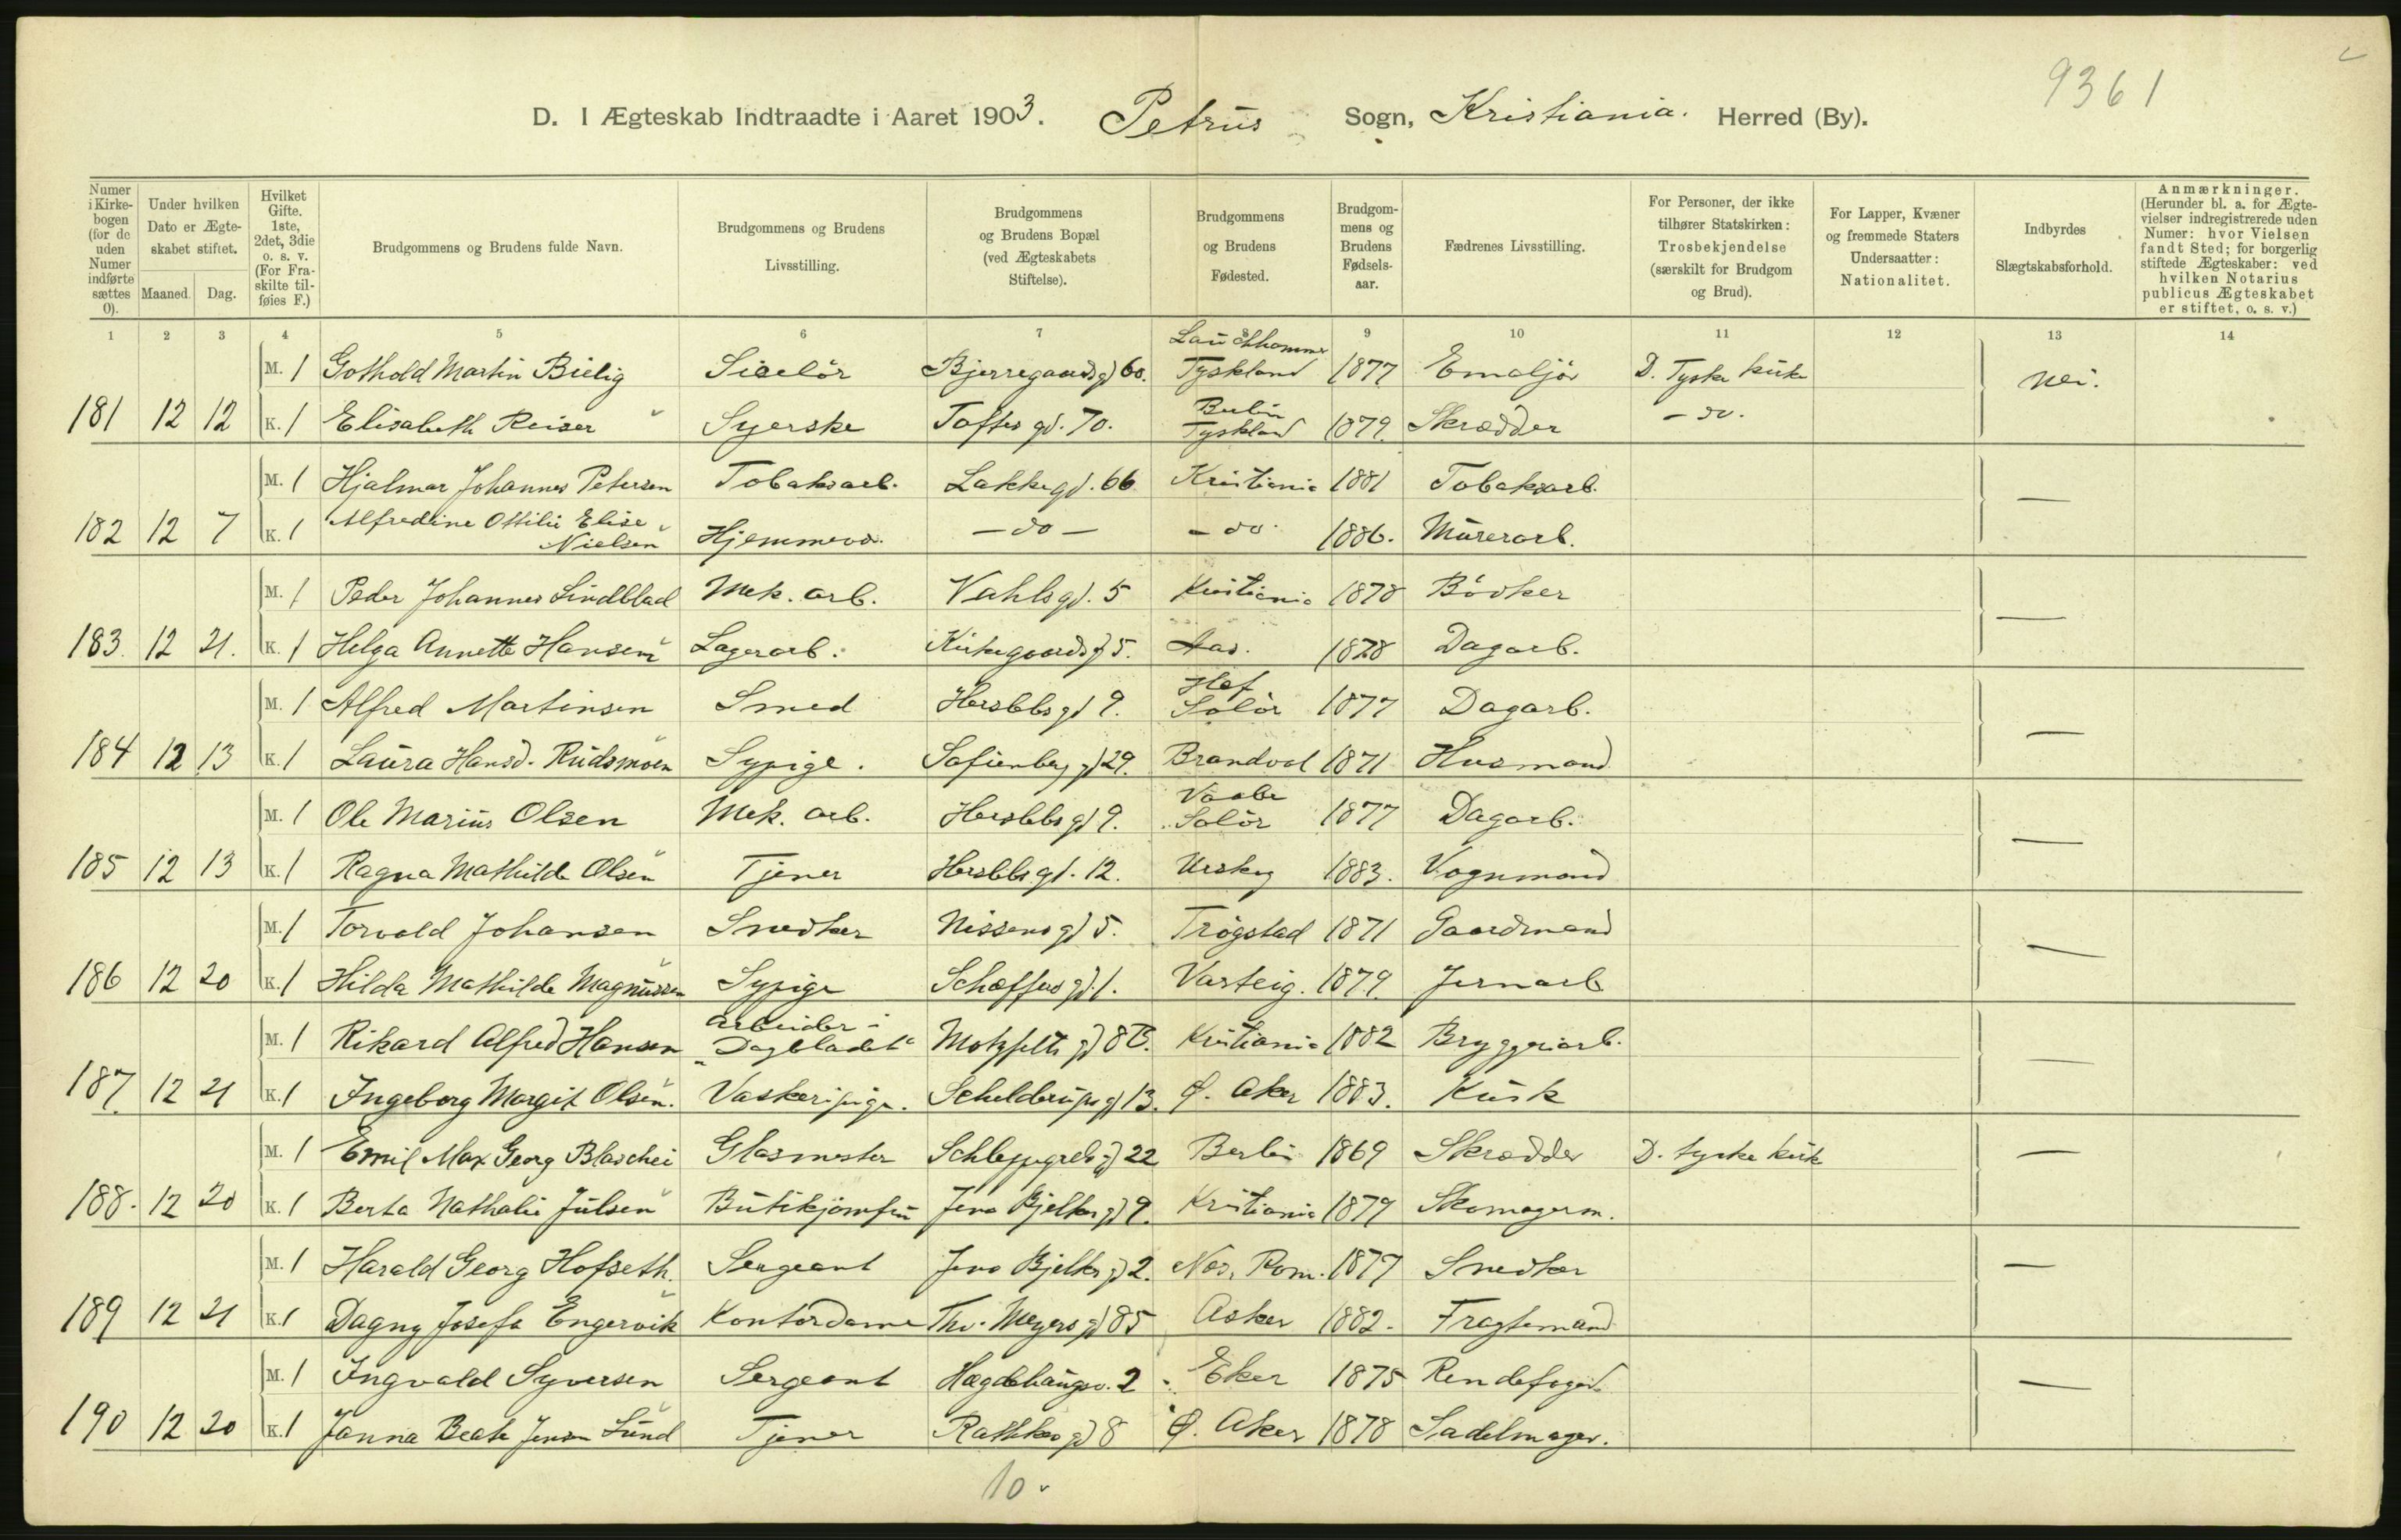 9361
D. I Ægteskab Indtraadte i Aaret 1903. Petrus Sogn, Kristiania. Herred (By).
Numer i Kirkebogen (for de uden Numer indførte sættes 0).
Under hvilken Dato er Ægteskabet stiftet.
Maaned. Dag.
Hvilket Gifte. 1ste, 2det, 3die o. s. v. (For Fraskilte tilføies F.)
Brudgommens og Brudens fulde Navn.
Brudgommens og Brudens Livsstilling.
Brudgommens og Brudens Bopæl (ved Ægteskabets Stiftelse).
Brudgommens og Brudens Fødested.
Brudgommens og Brudens Fødselsaar.
Fædrenes Livsstilling.
For Personer, der ikke tilhører Statskirken: Trosbekjendelse (særskilt for Brudgom og Brud).
For Lapper, Kvæner og fremmede Staters Undersaatter: Nationalitet.
Indbyrdes Slægtskabsforhold.
Anmærkninger. (Herunder bl. a. for Ægtevielser indregistrerede uden Numer: hvor Vielsen fandt Sted; for borgerlig stiftede Ægteskaber: ved hvilken Notarius publicus Ægteskabet er stiftet, o. s. v.)
1 2 3 4 5 6 7 8 9 10 11 12 13 14
M. 1 Gothold Martin Bielig Siselör Bjerregaardsgd 60. Lauchhammer Tyskland 1877 Emaljör D. Tyske kirke Nei.
181 12 12 K. 1 Elisabeth Reiser Syerske Toftes gd. 70. Berlin Tyskland 1879. Skrædder - do.
M. 1 Hjalmar Johannes Petersen Tobaksarb. Lakkegd. 66 Kristiania 1881 Tobaksarb. —
182 12 7 K. 1 Alfredine Ottilie Elise Nielsen Hjemmevær. - do - - do. 1886. Murerarb.
M. 1 Peder Johannes Lindblad Mek. arb. Vahlsgd. 5 Kristiania 1878 Bödker —
183. 12 21. K. 1 Helga Annette Hansen Lagerarb. Kirkegaardsgd 5. Aas. 1878 Dagarb.
M. 1 Alfred Martinsen Smed Herslebsgd 9. Hof Solör 1877 Dagarb. —
184 12 13 K. 1 Laura Hansd. Rudsmoen Sypige. Sofienberggd 29. Brandval 1871 Husmand
M. 1 Ole Marius Olsen Mek. arb. Herslebsgd 9. Vaaler Solör 1877 Dagarb. —
185 12 13 K. 1 Ragna Mathilde Olsen Tjener Herslebsgd. 12. Urskog 1883. Vognmand
M. 1 Torvald Johansen Snedker Nissensgd 5. Trögstad 1871 Gaardmand —
186 12 20 K. 1 Hilda Mathilde Magnussen Sypige Schæffersgd. 1. Varteig. 1879. Jernarb
M. 1 Rikard Alfred Hansen Arbeider i „Dagbladet“ Motzfelts gd 8B. Kristiania 1882 Bryggeriarb. —
187. 12 21 K. 1 Ingeborg Margit Olsen. Vaskeripige. Schelderups gd 13. Ø. Aker 1883. Kusk
M. 1 Emil Max Georg Blaschei Glasmester Schleppegrels gd 22 Berlin 1869 Skrædder D. tyske kirke —
188. 12 20 K. 1 Berta Nathalie Julsen Butikjomfru Jens Bjelkes gd 9. Kristiania 1879 Skomagerm.
M. 1 Harald Georg Hofseth. Sergeant Jens Bjelkes gd 2. Nes, Rom. 1877 Snedker —
189 12 21 K. 1 Dagny Josefa Engervik Kontordame Thv. Meyers gd 85 Asker 1882. Fragtemand
M. 1 Ingvald Syversen Sergeant Hægdehaugsv. 2 Eker 1875 Rendefoged —
190 12 20 K. 1 Janna Beate Jensen Lund Tjener Rathkes gd 8 Ø. Aker 1878 Sadelmager.
10.